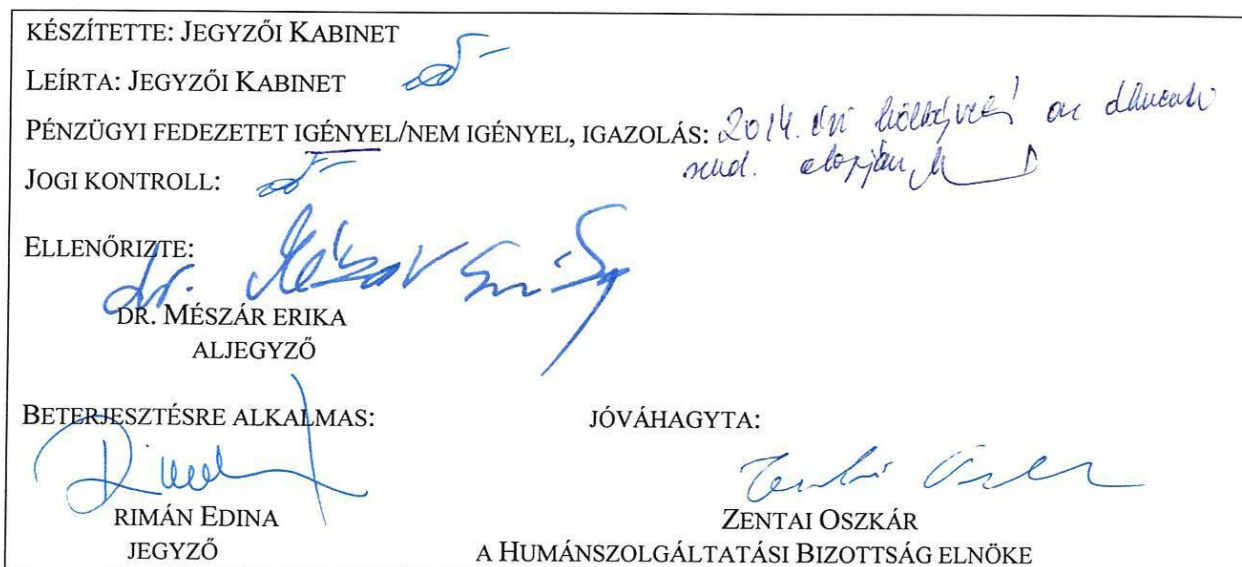 KÉSZÍTETTE: JEGYZŐI KABINET
LEÍRTA: JEGYZŐI KABINET
PÉNZÜGYI FEDEZETET IGÉNYEL/NEM IGÉNYEL, IGAZOLÁS: 2014. évi
alapján
JOGI KONTROLL:
ELLENŐRIZTE:
dr. Mészár Erika
DR. MÉSZÁR ERIKA
ALJEGYZŐ
BETERJESZTÉSRE ALKALMAS: JÓVÁHAGYTA:
RIMÁN EDINA ZENTAI OSZKÁR
JEGYZŐ A HUMÁNSZOLGÁLTATÁSI BIZOTTSÁG ELNÖKE